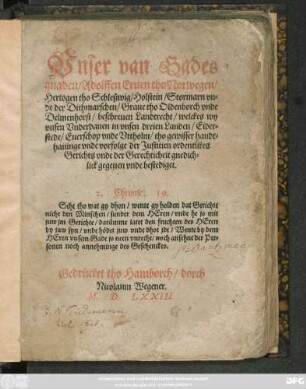 Vnser van Gades
gnaden/ Adolffen Eruen tho Norwegen/
Hertogen tho Schleßwig/ Holstein/ Stormarn vn-
de der Dithmarschen/ Graue tho Oldenborch vnde
Delmenhorst/ beschreuen Landtrecht/ welckes wy
vnsen Vnderdanen in vnsen dreien Landen/ Eider-
stede/ Euerschop vnde Vtholm/ tho gewisser handt-
hauinge vnde vorfolge der Justitien ordentlikes
Gerichts vnde der Gerechticheit gnedich-
lick gegeuen vnde bestediget.
2. Chronic. 19.
Seht tho wat gy dhon/ wente gy holden dat Gerichte
nicht den Minschen/ sunder dem HEren/ vnde he is mit
juw jm Gerichte/ darümme latet den fruchten des HEren
by juw syn/ vnde hödet juw vnde dhot jdt/ Wente by dem
HEren vnsem Gade ys neen vnrecht/ noch anseent der Per-
sonen noch annehminge des Geschenckes.
Gedrücket tho Hamborch/ dorch
Nicolaum Wegener.
M. D. LXXIII.